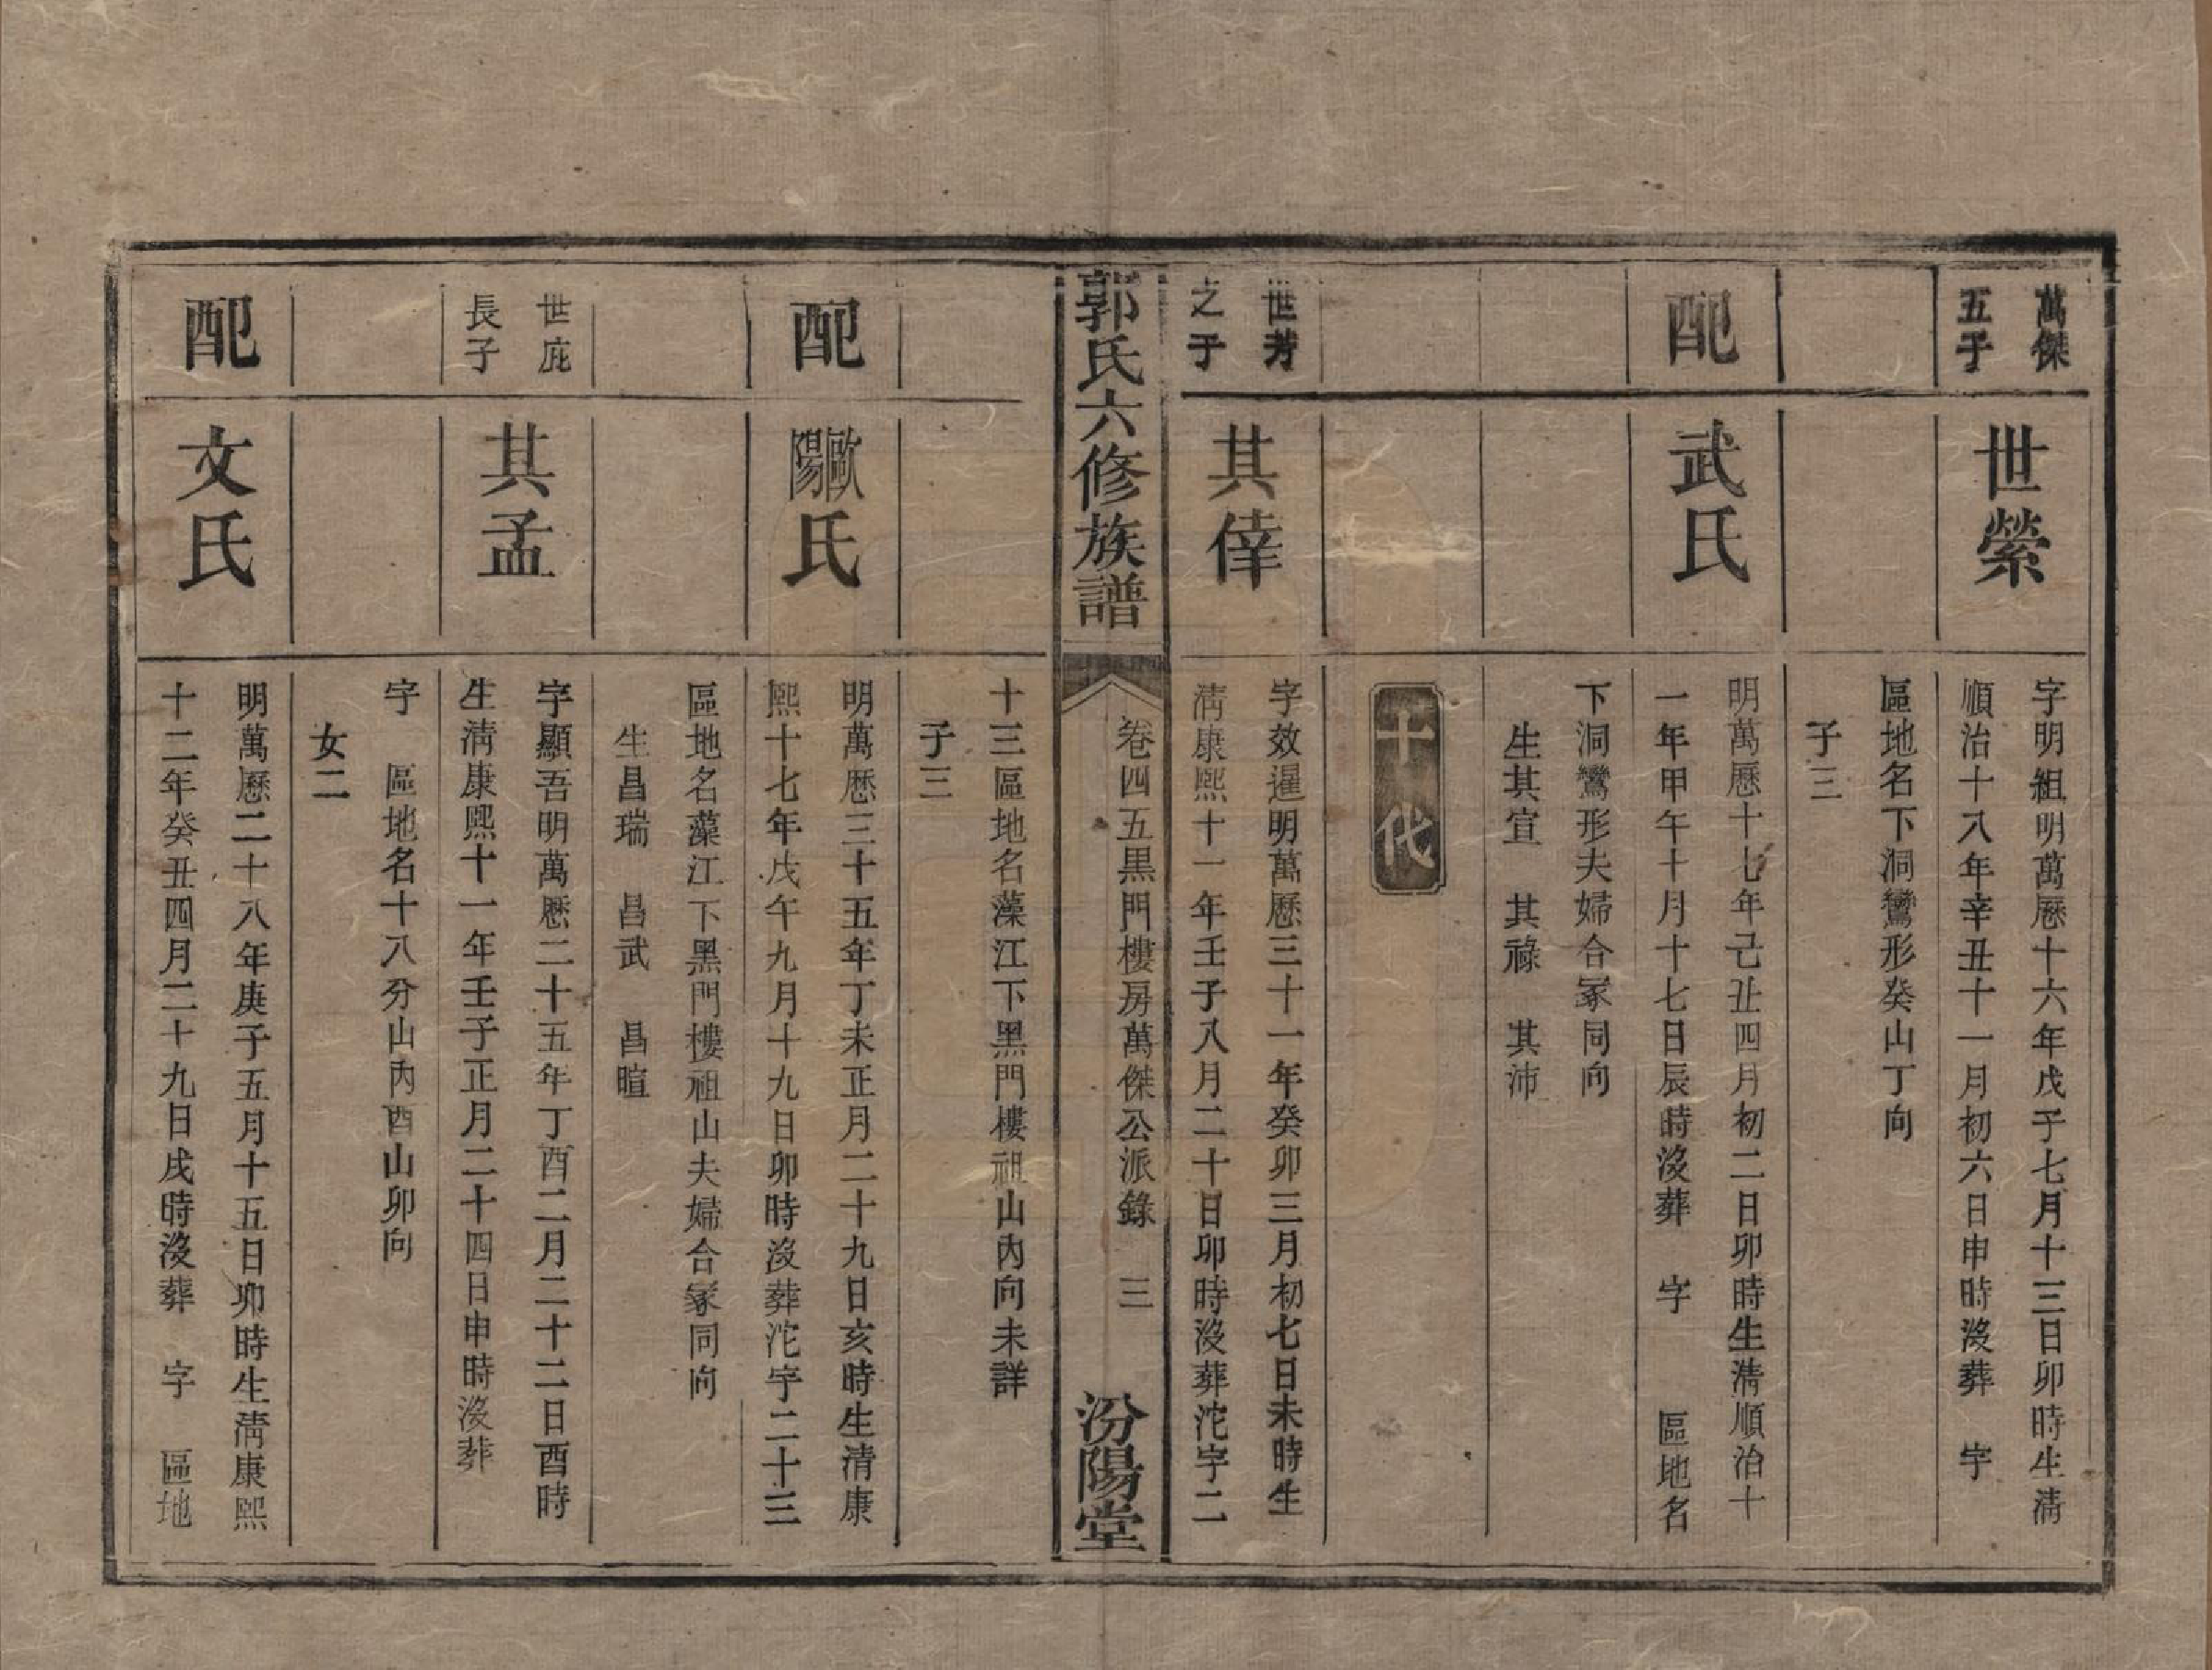 萬傑
五子
世縈
字明組明萬曆十六年戊子七月十三日卯時生清
順治十八年辛丑十一月初六日申時沒葬　字
區地名下洞鸞形癸山丁向
子三
配
武氏
明萬曆十七年己丑四月初二日卯時生清順治十
一年甲午十月十七日辰時沒葬　字　區地名
下洞鸞形夫婦合冢同向
生其宣　其祿　其沛
十代
世芳
之子
其倖
字效暹明萬曆三十一年癸卯三月初七日未時生
清康熙十一年壬子八月二十日卯時沒葬沱字二
郭氏六修族譜
卷四五黑門樓房萬傑公派錄　三
汾陽堂
十三區地名藻江下黑門樓祖山內向未詳
子三
配
歐陽氏
明萬曆三十五年丁未正月二十九日亥時生清康
熙十七年戊午九月十九日卯時沒葬沱字二十三
區地名藻江下黑門樓祖山夫婦合冢同向
生昌瑞　昌武　昌暄
世庇
長子
其孟
字顯吾明萬曆二十五年丁酉二月二十二日酉時
生清康熙十一年壬子正月二十四日申時沒葬
字　區地名十八分山內酉山卯向
女二
配
文氏
明萬曆二十八年庚子五月十五日卯時生清康熙
十二年癸丑四月二十九日戌時沒葬　字　區地